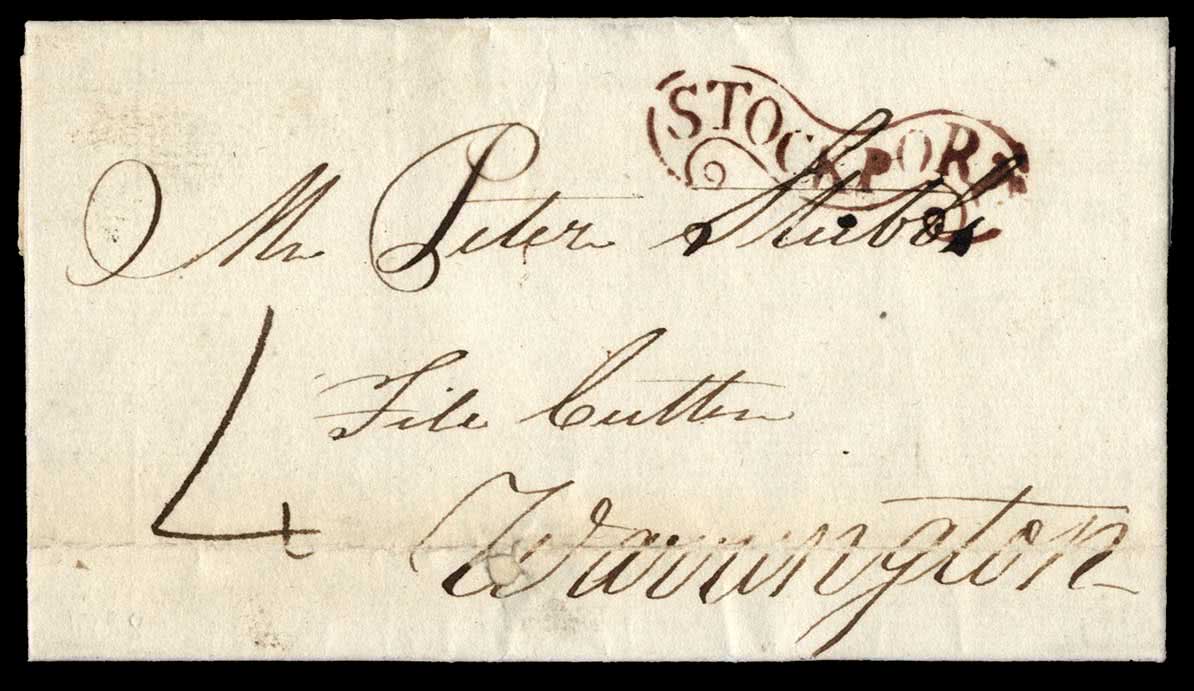 STOCKPORT
Mr Peter Stubbs
File Cutter
Warrington
4